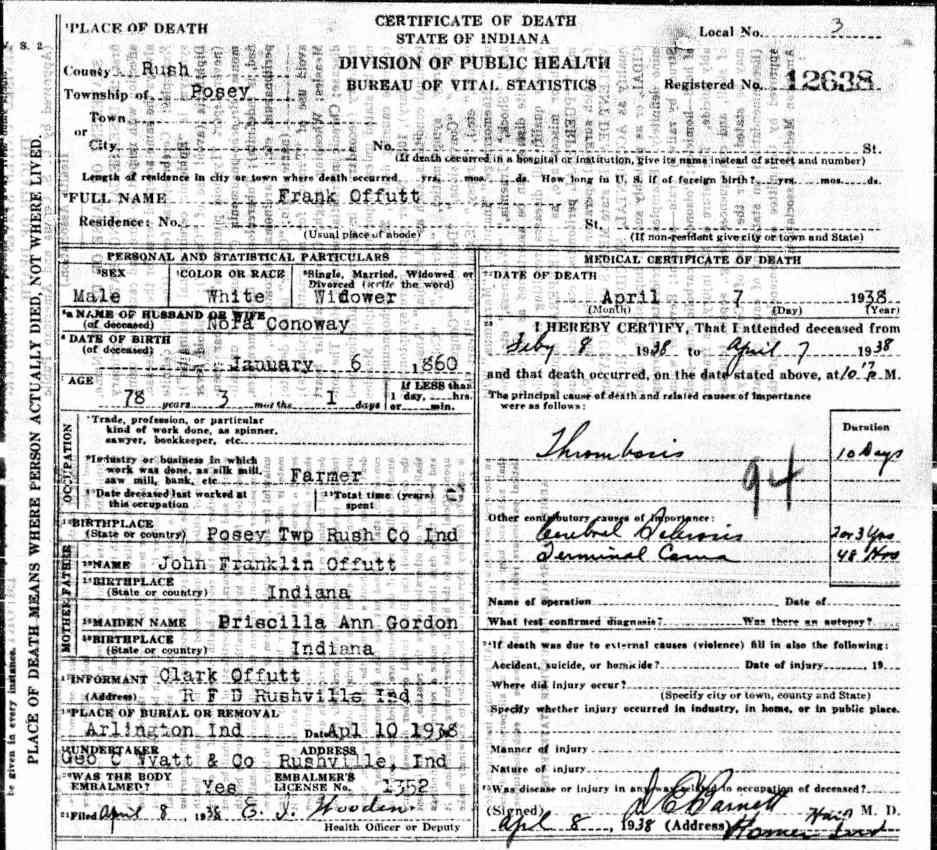 CERTIFICATE OF DEATH
STATE OF INDIANA
DIVISION OF PUBLIC HEALTH
BUREAU OF VITAL STATISTICS
Local No. 3
Registered No. 12638
V. S. 2
PLACE OF DEATH
County Rush
Township of Posey
Town
or
City No. St.
(If death occurred in a hospital or institution, give its name instead of street and number)
Length of residence in city or town where death occurred yrs. mos. ds. How long in U. S. if of foreign birth? yrs. mos. ds.
FULL NAME Frank Offutt
Residence: No. St.
(Usual place of abode) (If non-resident give city or town and State)
PERSONAL AND STATISTICAL PARTICULARS
SEX COLOR OR RACE Single, Married, Widowed or
Divorced (write the word)
Male White Widower
NAME OF HUSBAND OR WIFE
(of deceased) Nora Conoway
DATE OF BIRTH
(of deceased)
January 6 1860
AGE If LESS than
1 day, hrs.
78 years 3 months 1 days or min.
OCCUPATION
Trade, profession, or particular
kind of work done, as spinner,
sawyer, bookkeeper, etc.
Industry or business in which
work was done, as silk mill,
saw mill, bank, etc Farmer
Date deceased last worked at
this occupation
Total time (years)
spent
BIRTHPLACE
(State or country) Posey Twp Rush Co Ind
FATHER
NAME John Franklin Offutt
BIRTHPLACE
(State or country) Indiana
MOTHER
MAIDEN NAME Priscilla Ann Gordon
BIRTHPLACE
(State or country) Indiana
INFORMANT Clark Offutt
(Address) R F D Rushville Ind
PLACE OF BURIAL OR REMOVAL
Arlington Ind Date Apl 10 1938
UNDERTAKER ADDRESS
Geo C Wyatt & Co Rushville, Ind
WAS THE BODY
EMBALMED? Yes
EMBALMER'S
LICENSE No. 1352
Filed April 8, 1938 E. I. Wooden
Health Officer or Deputy
MEDICAL CERTIFICATE OF DEATH
DATE OF DEATH
April 7 1938
(Month) (Day) (Year)
I HEREBY CERTIFY, That I attended deceased from
Feby 8 1938 to April 7 1938
and that death occurred, on the date stated above, at 10 P. M.
The principal cause of death and related causes of importance
were as follows:
Duration
Thrombosis 10 Days
94
Other contributory causes of importance:
Cerebral Sclerosis 2 or 3 Yrs
Terminal Coma 48 Hrs
Name of operation Date of
What test confirmed diagnosis? Was there an autopsy?
If death was due to external causes (violence) fill in also the following:
Accident, suicide, or homicide? Date of injury 19
Where did injury occur?
(Specify city or town, county and State)
Specify whether injury occurred in industry, in home, or in public place.
Manner of injury
Nature of injury
Was disease or injury in any way related to occupation of deceased?
(Signed) Barnett M. D.
April 8, 1938 (Address) Homer Ind
PLACE OF DEATH MEANS WHERE PERSON ACTUALLY DIED, NOT WHERE LIVED.
be given in every instance.